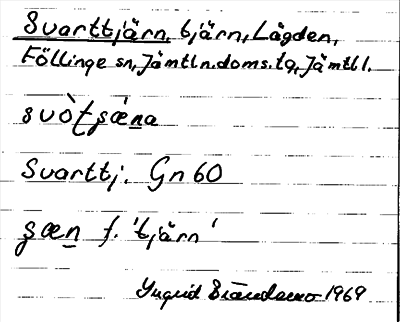 Svarttjärn, tjärn, Lågden,
Föllinge sn, Jämtl n. doms. tg, Jämtl l.
svòťʂǽna
Svarttj. Gn 60
ʂæn f. 'tjärn'
Ingrid 1969